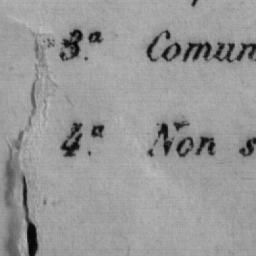 3.ª Comun
4.ª Non s